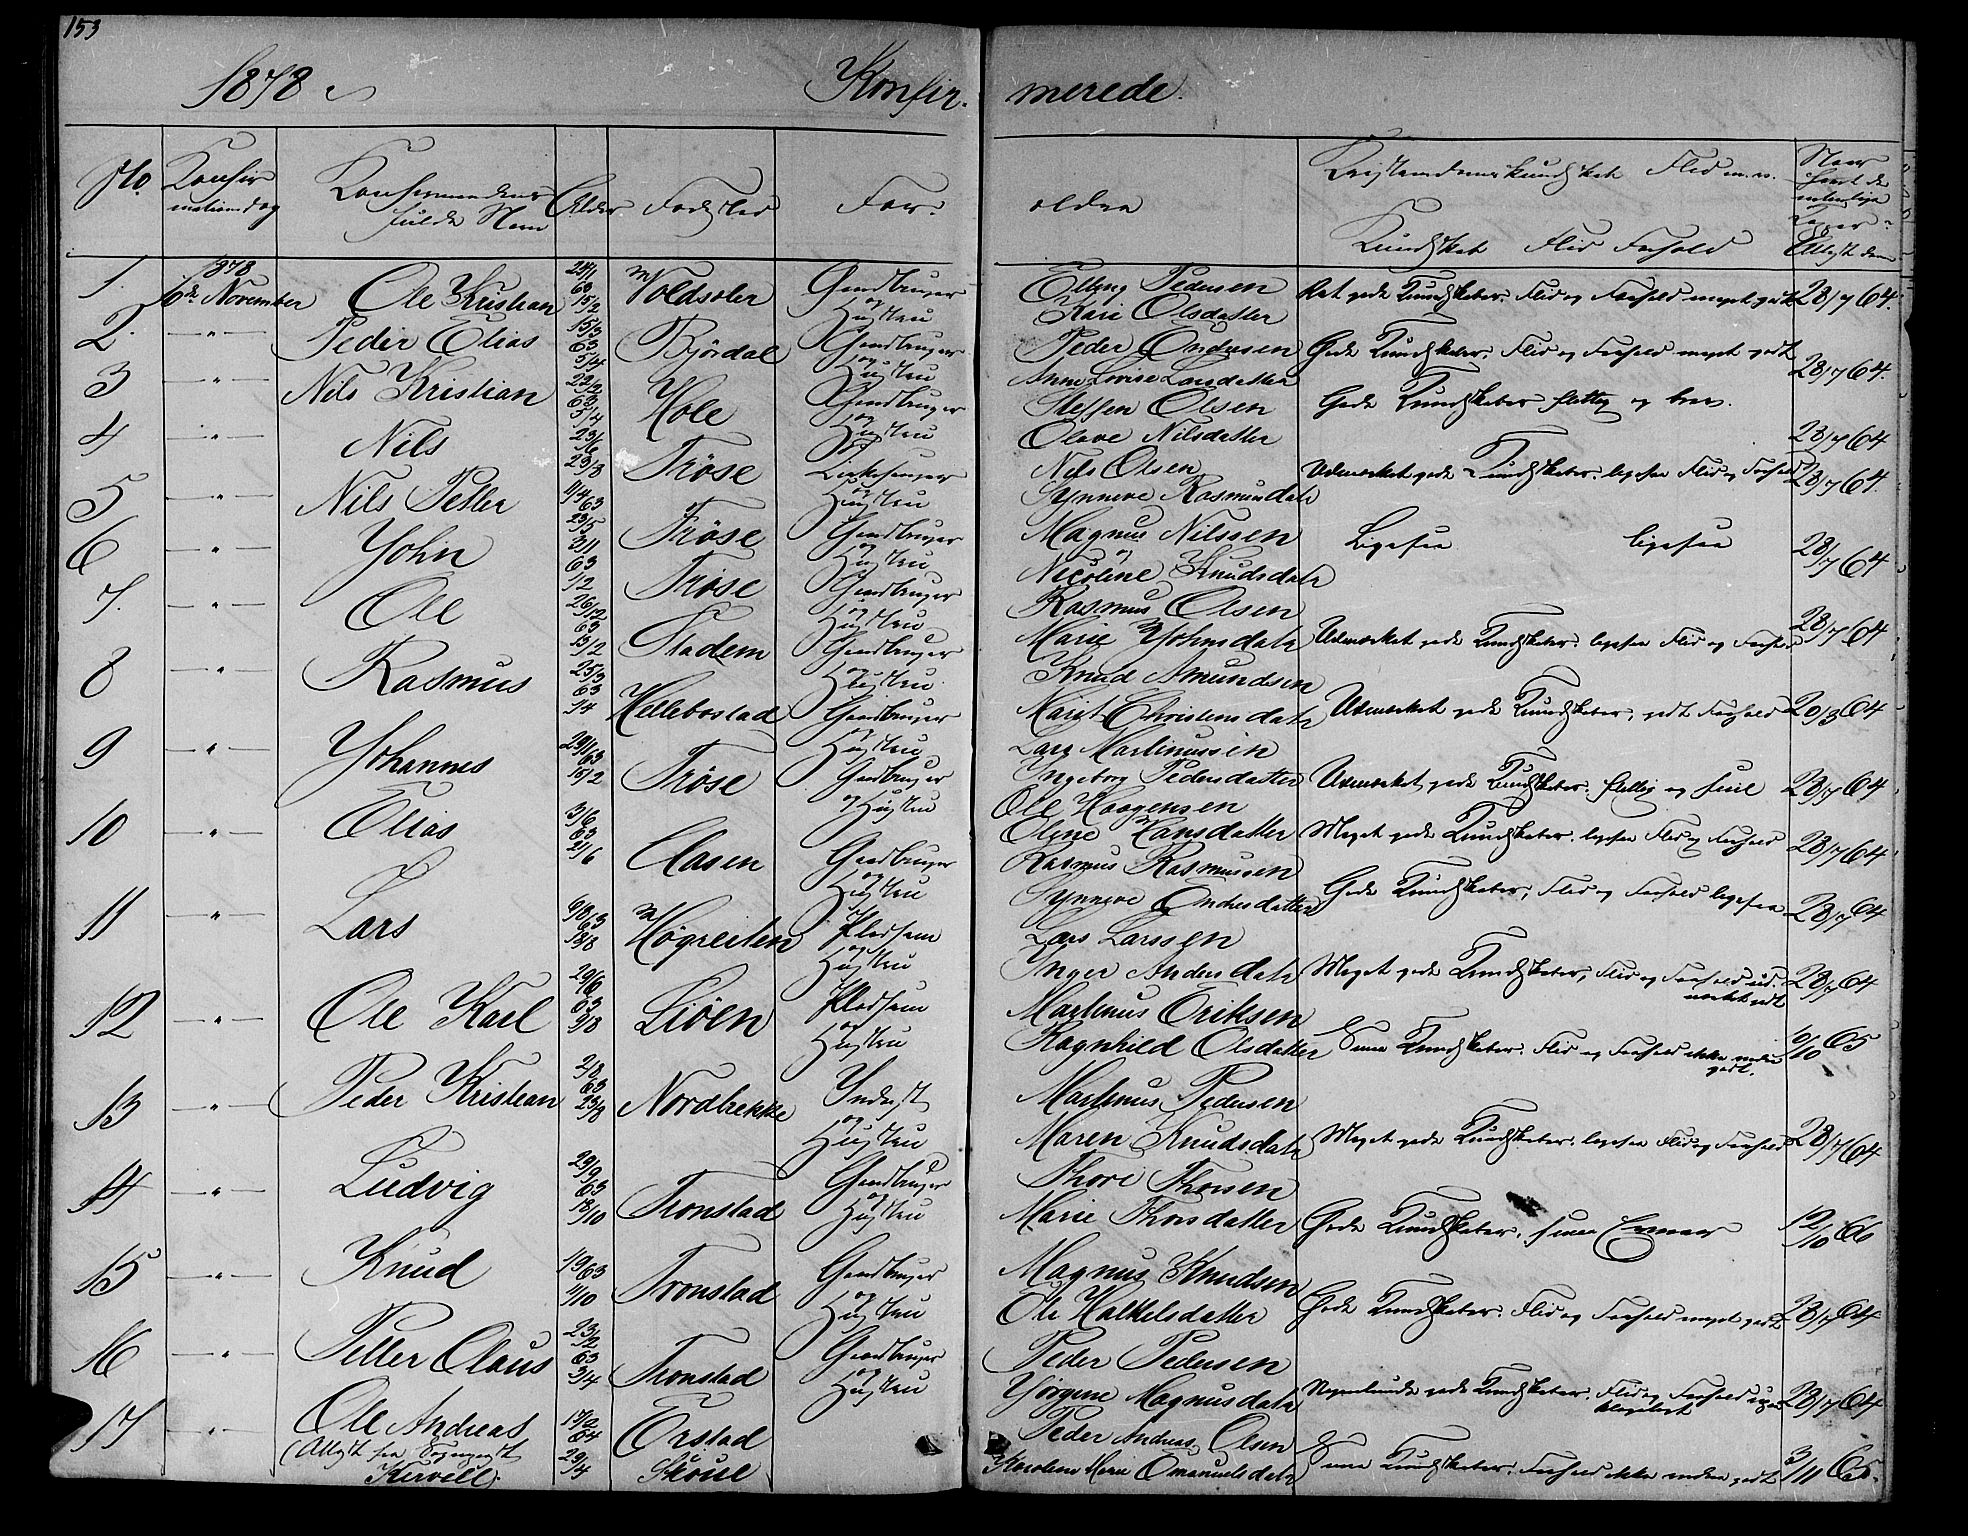 153
1878
Konfir- merede.
No. Konfirmationsdag Konfirmandens fulde Navn Alder Fødested For- ældre Kristendomskundskab Flid m.v.
Kundskab Flid Forhold
1. 1878 6te November Ole Kristian 24/1 63 15/2 Voldsæter Gaardbruger og Hustru Elling Pedersen Kari Olsdatter Ret gode Kundskaber. Flid og Forhold meget godt 28/7 64.
2. -"- Peder Elias 15/3 63 5/4 Bjórdal Gaardbruger og Hustru Peder Andersen Anne Lovise Larsdatter Gode Kundskaber, Flid og Forhold meget godt 28/7 64.
3 -"- Nils Kristian 22/2 63 5/4 Hole Gaardbruger og Hustru Steffen Olsen Olave Nilsdatter Gode Kundskaber flittig og brav. 28/7 64
4 -"- Nils Tróse Hustru Nils Olsen Synneve Rasmusdatr Udmærket gode Kundskaber. ligesaa Flid og Forhold 28/7 64.
5 -"- Nils Petter Tróse Gaardbruger og Hustru Magnus Nilssen Nicoline Knudsdatr Ligesaa ligesaa 28/7 64
6 -"- Yohn 63 1/2 Tróse Gaardbruger og Hustru Rasmus Olsen Marie Yohnsdatr Udmærket gode Kundskaber. ligesaa Flid og Forhold 28/7 64
7. -"- Ole 26/12 63 13/2 Stadem Gaardbruger og Hustru Knud Amundsen Marit Christensdatr Udmærket gode Kundskaber, godt Forhold 20/3 64
8 -"- Rasmus 25/3 63 Hellebostad Gaardbruger Hustru Lars Martinussen Ingeborg Pedersdatter Udmærket gode Kundskaber. flittig og 28/7 64
9 -"- Yohannes 63 15/2 Tróse Gaardbruger og Hustru Ole Haagensen Oline Hansdatter Meget gode Kundskaber. ligesaa Flid og Forhold 28/7 64
10 -"- Elias 3/6 63 21/6 Aasen Gaardbruger og Hustru Rasmus Rasmussen Synneve Andersdatter Gode Kundskaber, Flid og Forhold ligesaa 28/7 64
11 -"- Lars 6/8 63 18/8 Høgreiten Pladsem og Hustru Lars Larssen Inger Andersdatr Meget gode Kundskaber, Flid og Forhold udmærket godt 28/7 64
12 -"- Ole Karl 29/6 63 9/8 Lióen Pladsem og Hustru Martinus Eriksen Ragnhild Olsdatter Svage Kundskaber. Flid og Forhold ikke andet godt. 6/10 65
13 -"- Peder Kristian 2/8 63 23/8 Nordbekke Inderst og Hustru Martinus Pedersen Maren Knudsdatr Meget gode Kundskaber. ligesaa Flid og Forhold 28/7 64
14 -"- Ludvig 29/9 63 18/10 Tronstad Gaardbruger og Hustru Thore Thorsen Marie Thorsdatter Gode Kundskaber. 12/10 66
15 -"- Knud 19/9 63 11/10 Tronstad Gaardbruger og Hustru Magnus Knudsen Ole Halkelsdatter Gode Kundskaber. Flid og Forhold meget godt 28/7 64
16 -"- Petter Claus 23/2 63 3/4 Tronstad Gaardbruger og Hustru Peder Pedersen Yórgine Magnusdatr Nogenlunde gode Kundskaber. Flid og Forhold 28/7 64
17 -"- Ole Andreas (Attest fra Sognepræst Kirvell) 17/2 64 29/4 Ørstad Skoue Peder Andreas Olsen Karoline Marie Emanuelsdatr Svage Kundskaber. Forhold ikke andet godt 3/11 65.